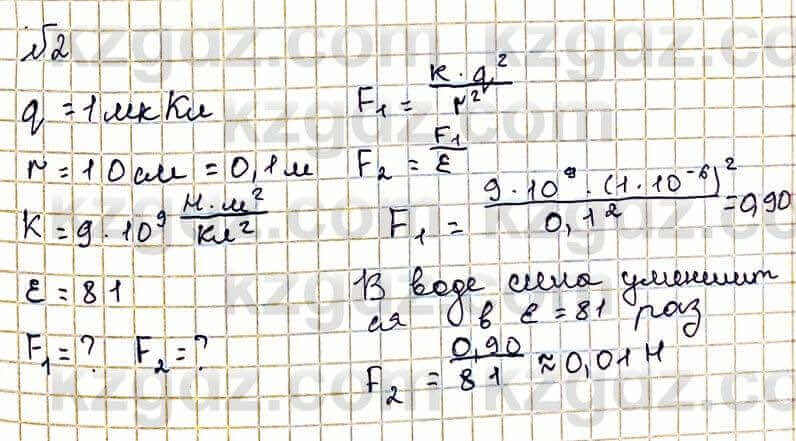 №2
q = 1 мкКл
r = 10 см = 0,1 м
K = 9 · 10⁹ Н·м²/Кл²
ε = 81
F₁ = ? F₂ = ?
F₁ = к · q²/r²
F₂ = F₁/ε
F₁ = 9 · 10⁹ · (1 · 10⁻⁶)²/0,1² = 0,90
В воде сила уменьшит
ся в ε = 81 раз
F₂ = 0,90/81 ≈ 0,01 Н
kzgdz.com
kzgdz.com
kzgdz.com
kzgdz.com
kzgdz.com